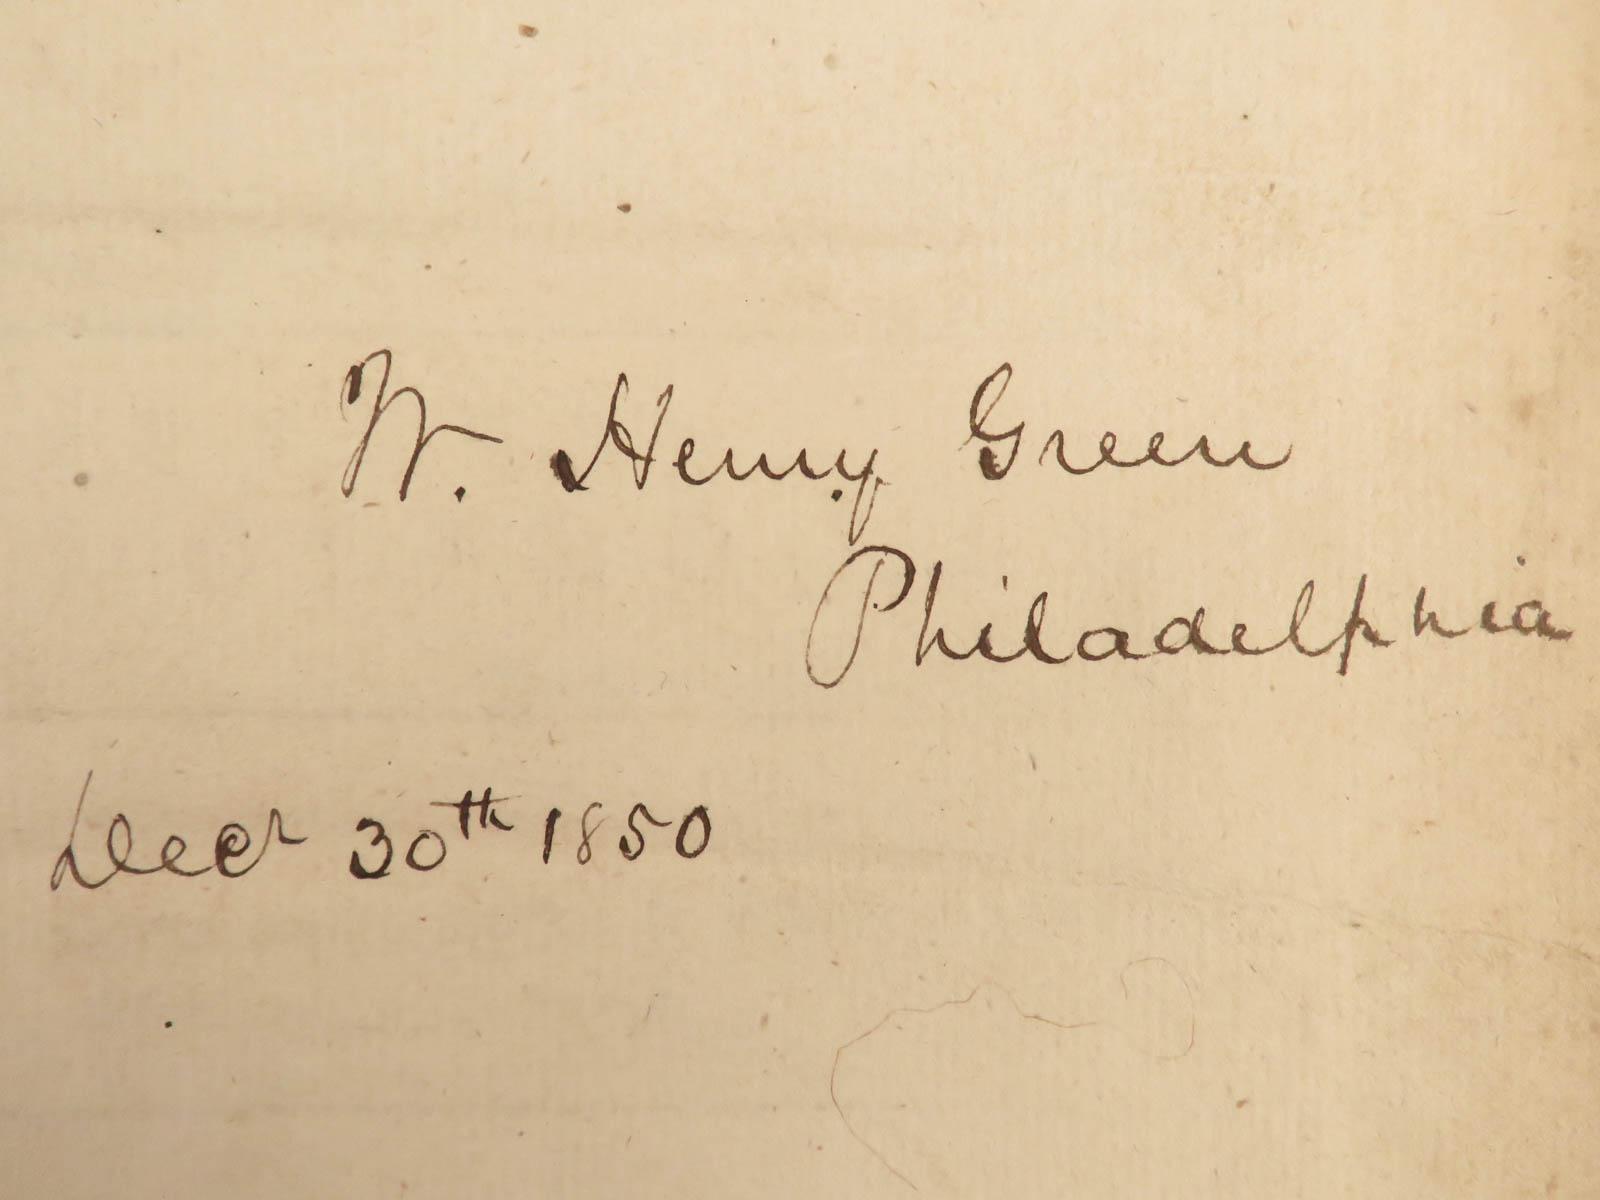 W. Henry Green
Philadelphia
Decr 30th 1850